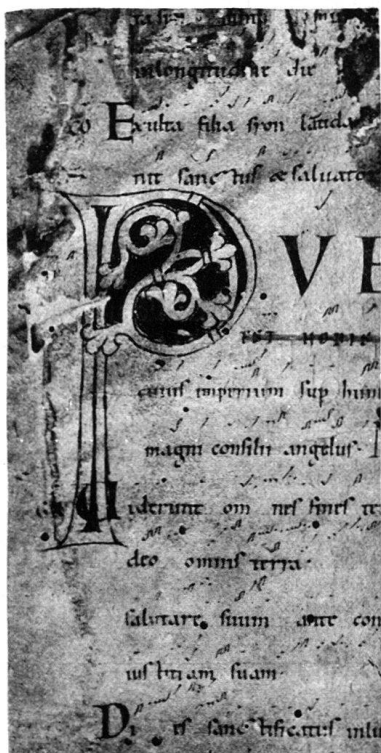 inlongitudine die
CO Exulta filia syon lauda
nit sanc tus & saluator
PVE
EST NOBIS
cuius imperium sup hum
magni consilii angelus.
iderunt om nes fines te
deo omnis terra.
salutare suum ante con
ius titiam suam.
Di es sanc tificatus inlu